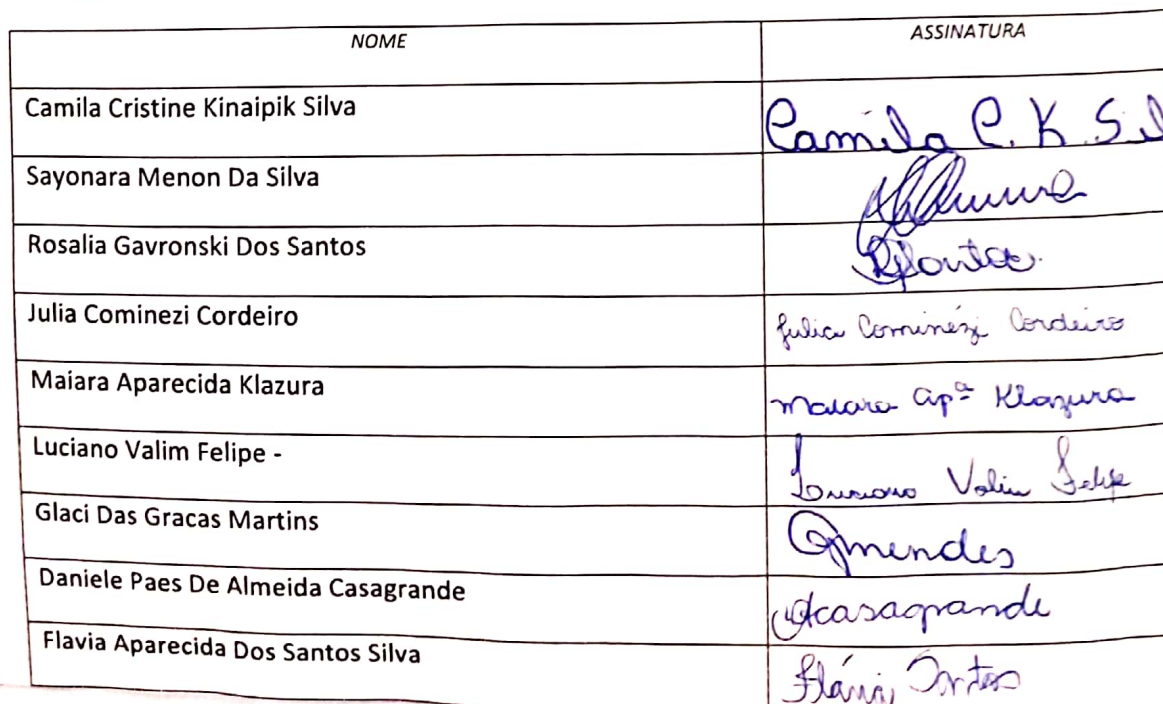 NOME ASSINATURA
Camila Cristine Kinaipik Silva Camila C. K. Sil
Sayonara Menon Da Silva
Rosalia Gavronski Dos Santos
Julia Cominezi Cordeiro Julia Cominézi Cordeiro
Maiara Aparecida Klazura Maiara Apª Klazura
Luciano Valim Felipe - Luciano Valim Felipe
Glaci Das Gracas Martins Gmendes
Daniele Paes De Almeida Casagrande casagrande
Flavia Aparecida Dos Santos Silva Flávia Santos